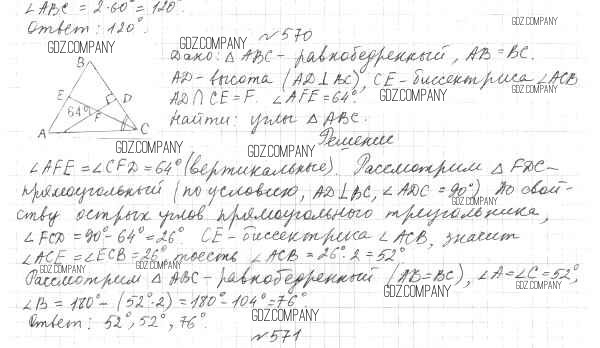 ∠ABC = 2·60° = 120°.
Ответ: 120°.
GDZ.COMPANY
№570
GDZ.COMPANY GDZ.COMPANY
Дано: △ABC - равнобедренный, AB = BC.
B
AD - высота (AD⊥BC), CE - биссектриса ∠ACB
E D
AD∩CE = F. ∠AFE = 64°. GDZ.COMPANY
64° F
Найти: углы △ABC.
A C
Решение
GDZ.COMPANY GDZ.COMPANY
∠AFE = ∠CFD = 64° (вертикальные). Рассмотрим △FDC -
прямоугольный (по условию, AD⊥BC, ∠ADC = 90°) По свой-
GDZ.COMPANY
ству острых углов прямоугольного треугольника,
∠FCD = 90° - 64° = 26° CE - биссектриса ∠ACB, значит
∠ACE = ∠ECB = 26° тоесть ∠ACB = 26°·2 = 52°
GDZ.COMPANY GDZ.COMPANY
Рассмотрим △ABC - равнобедренный (AB = BC), ∠A = ∠C = 52°,
GDZ.COMPANY GDZ.COMPANY
∠B = 180° - (52°·2) = 180° - 104° = 76°
Ответ: 52°, 52°, 76°.
GDZ.COMPANY
№571